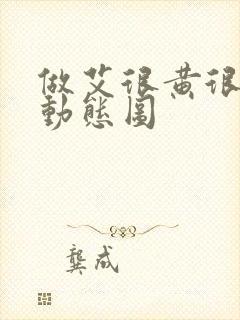 做艾很黄很
動態圖
龔成